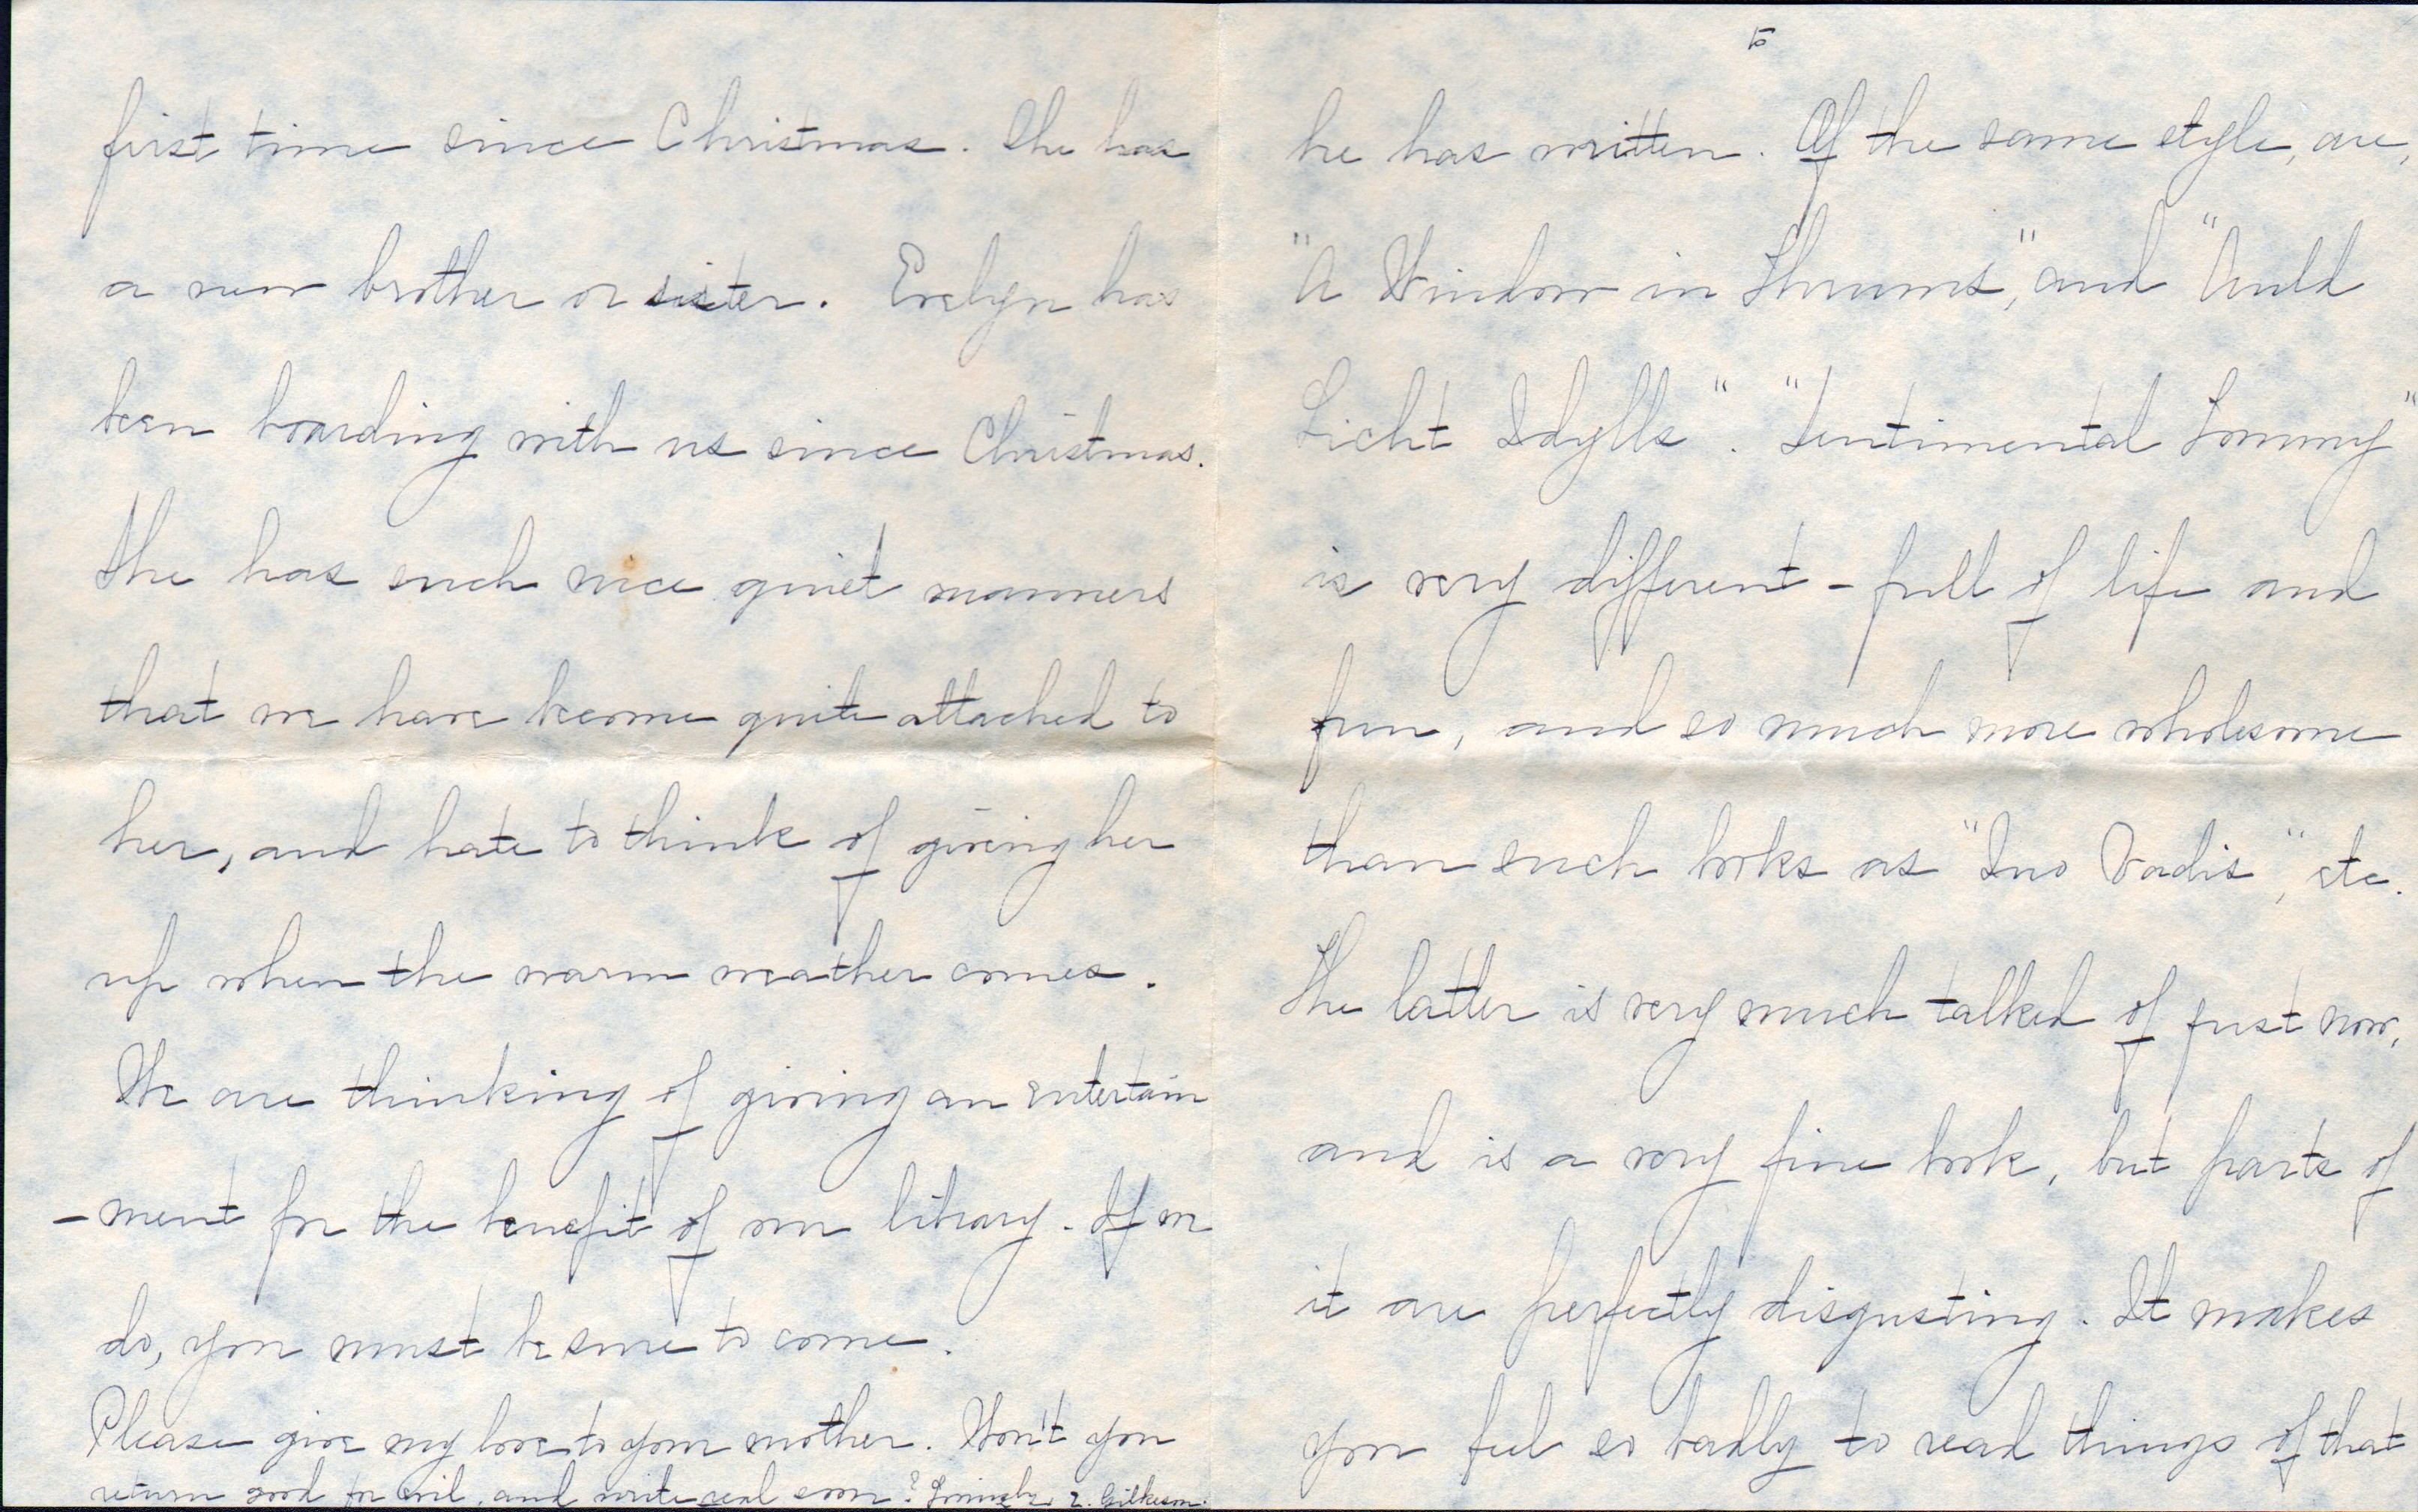 first time since Christmas. She has
a new brother or sister. Evelyn has
been boarding with us since Christmas.
She has such nice quiet manners
that we have become quite attached to
her, and hate to think of giving her
up when the warm weather comes.
We are thinking of giving an entertain
-ment for the benefit of our library. If we
do, you must be sure to come.
Please give my love to your mother. Won't you
return good for evil, and write real soon? Lovingly, L. Gilkeson.
5
he has written. Of the same style, are,
"A Window in Thrums", and "Auld
Licht Idylls". "Sentimental Tommy"
is very different - full of life and
fun, and so much more wholesome
than such books as "Quo Vadis", etc.
The latter is very much talked of just now,
and is a very fine book, but parts of
it are perfectly disgusting. It makes
you feel so badly to read things of that